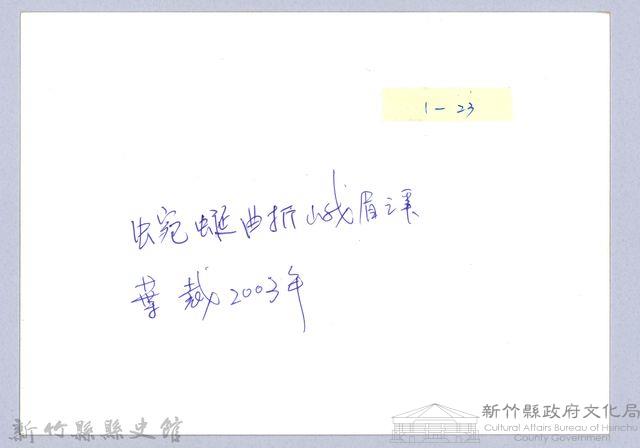 1-23
蜿蜒曲折峨眉溪
葉裁2003年
新竹縣縣史館
新竹縣政府文化局
Cultural Affairs Bureau of Hsinchu
County Government